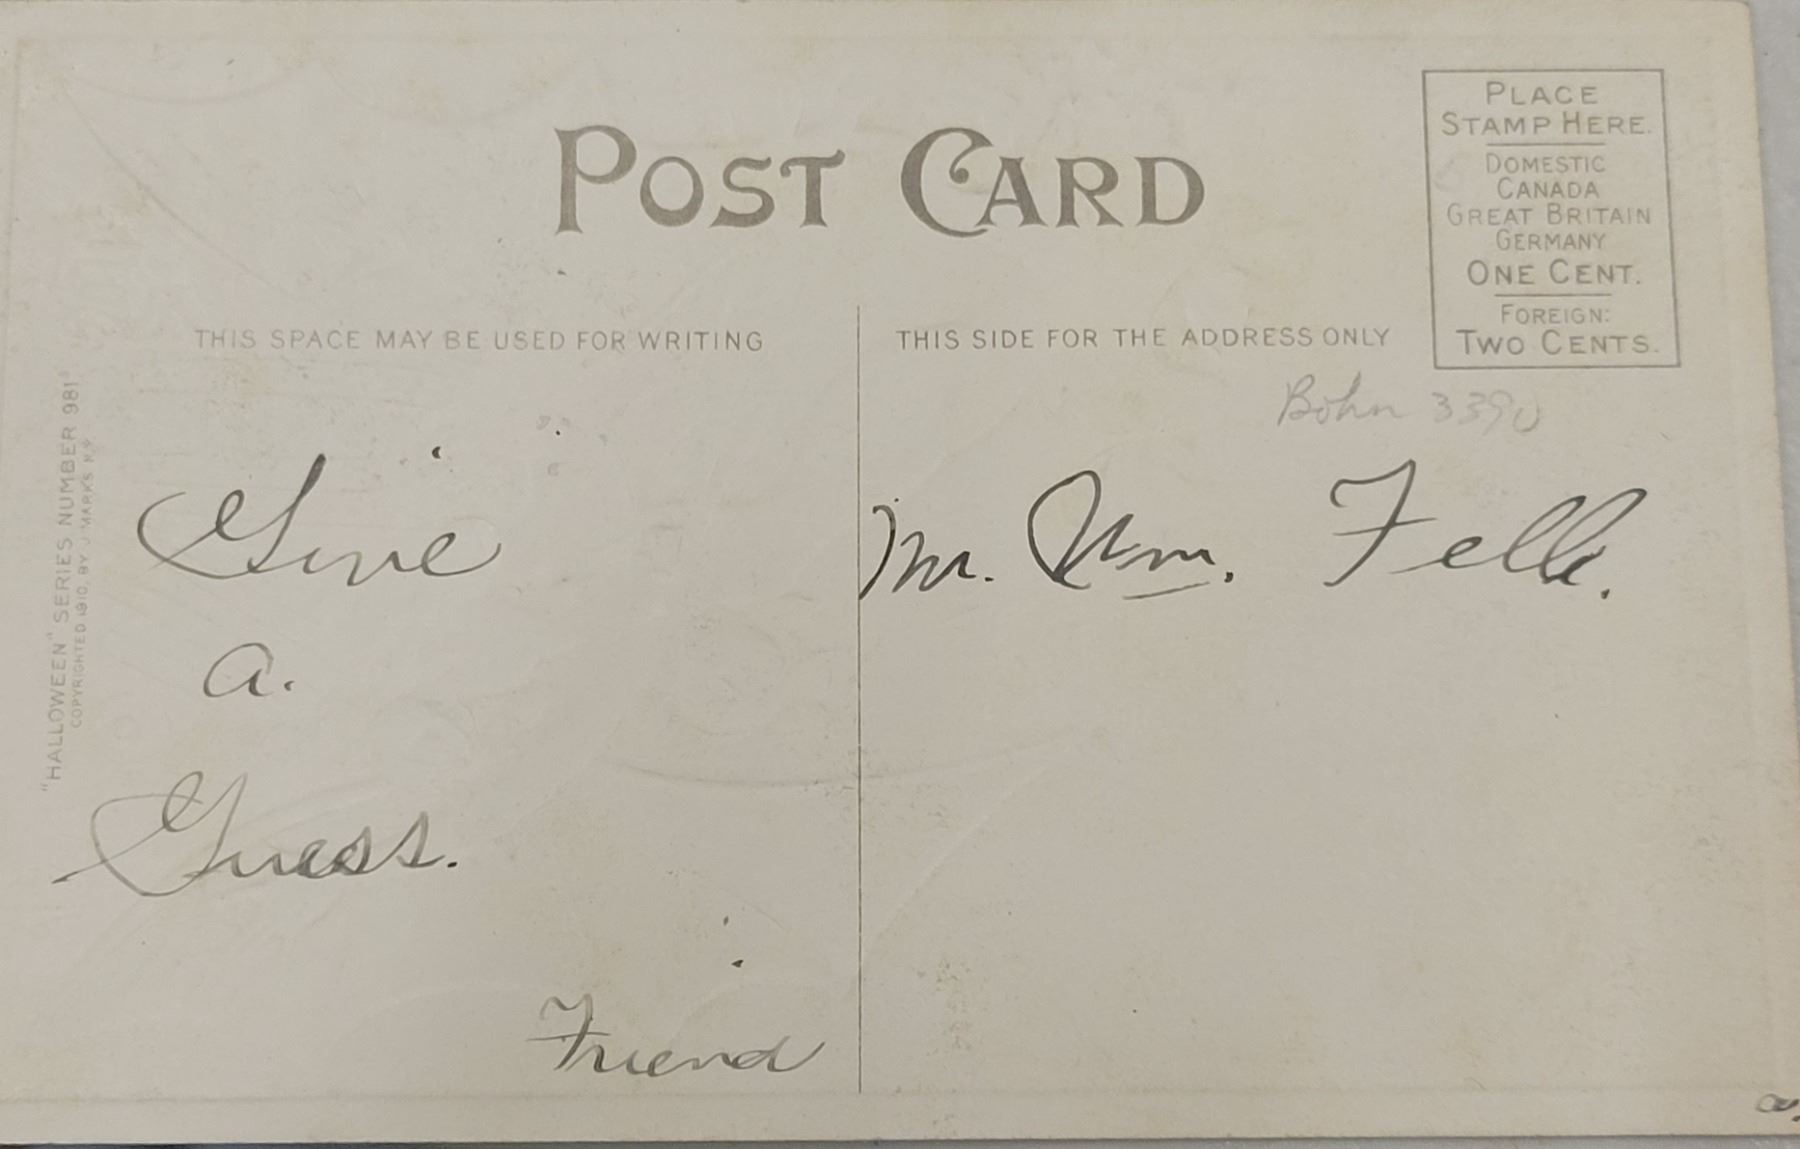 POST CARD
PLACE
STAMP HERE.
DOMESTIC
CANADA
GREAT BRITAIN
GERMANY
ONE CENT.
FOREIGN:
TWO CENTS.
THIS SPACE MAY BE USED FOR WRITING
THIS SIDE FOR THE ADDRESS ONLY
"HALLOWEEN" SERIES NUMBER 981"
COPYRIGHTED 1910, BY J. MARKS N.Y.
Bohn 3390
Give
a.
Guess.
Friend
Mr. Wm. Fells.